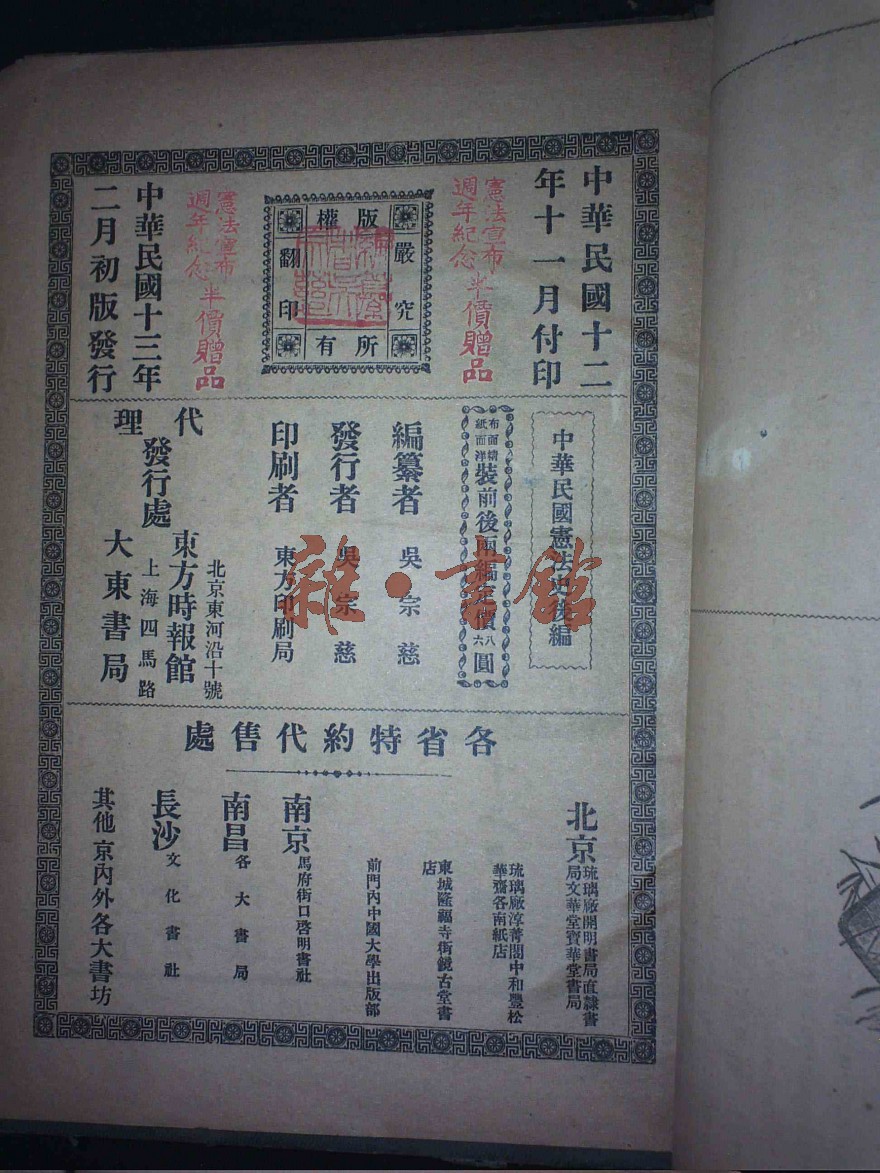 中華民國十二
年十一月付印
憲法宣布
週年紀念
半價贈品
版權
所有
翻印
嚴究
憲法宣布
週年紀念
半價贈品
中華民國十三年
二月初版發行
中華民國憲法史後編
布面精
紙面洋
裝前後兩編定價
八
六
圓
編纂者 吳宗慈
發行者 吳宗慈
印刷者 東方印刷局
代理
發行處
北京東河沿十號
東方時報館
上海四馬路
大東書局
各省特約代售處
北京
琉璃廠開明書局直隸書
局文華堂寶華堂書局
琉璃廠淳菁閣中和豐松
華齋各南紙店
東城隆福寺街鏡古堂書
店
前門內中國大學出版部
南京 馬府街口啓明書社
南昌 各大書局
長沙 文化書社
其他京內外各大書坊
雜·書館